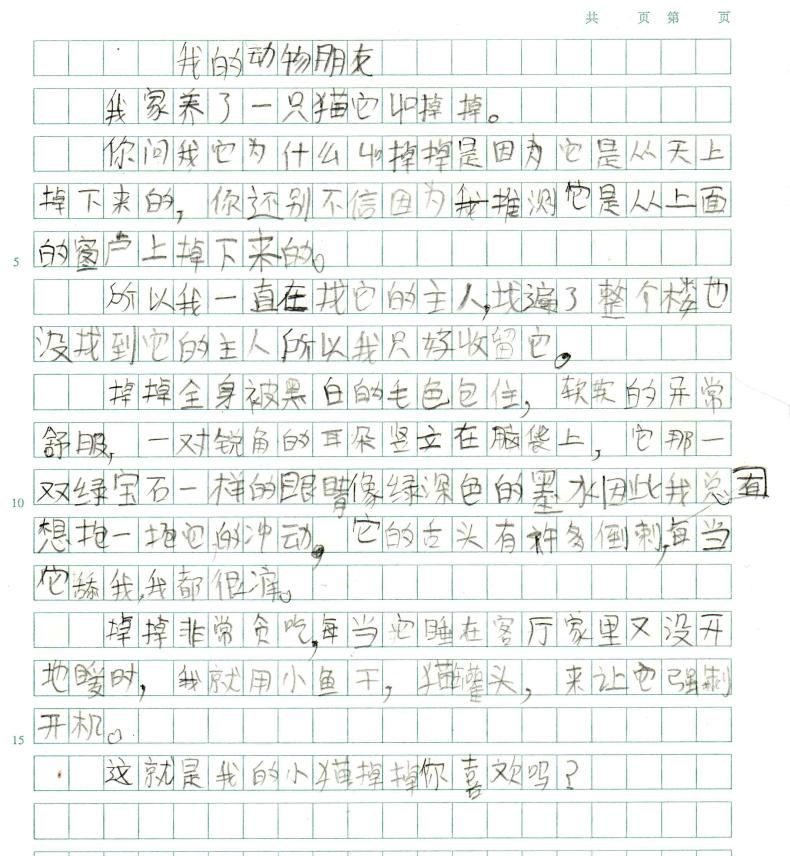 共 页 第 页
我的动物朋友
我家养了一只猫它叫掉掉。
你问我它为什么叫掉掉是因为它是从天上
掉下来的，你还别不信因为我推测它是从上面
5 的窗户上掉下来的。
所以我一直在找它的主人，找遍了整个楼也
没找到它的主人所以我只好收留它。
掉掉全身被黑白的毛色包住，软软的异常
舒服，一对锐角的耳朵竖立在脑袋上，它那一
10 双绿宝石一样的眼睛像绿深色的墨水因此我总有
想抱一抱它的冲动，它的舌头有许多倒刺，每当
它舔我，我都很痒。
掉掉非常贪吃，每当它睡在客厅家里又没开
地暖时，我就用小鱼干，猫罐头，来让它强制
15 开机。
这就是我的小猫掉掉你喜欢吗？